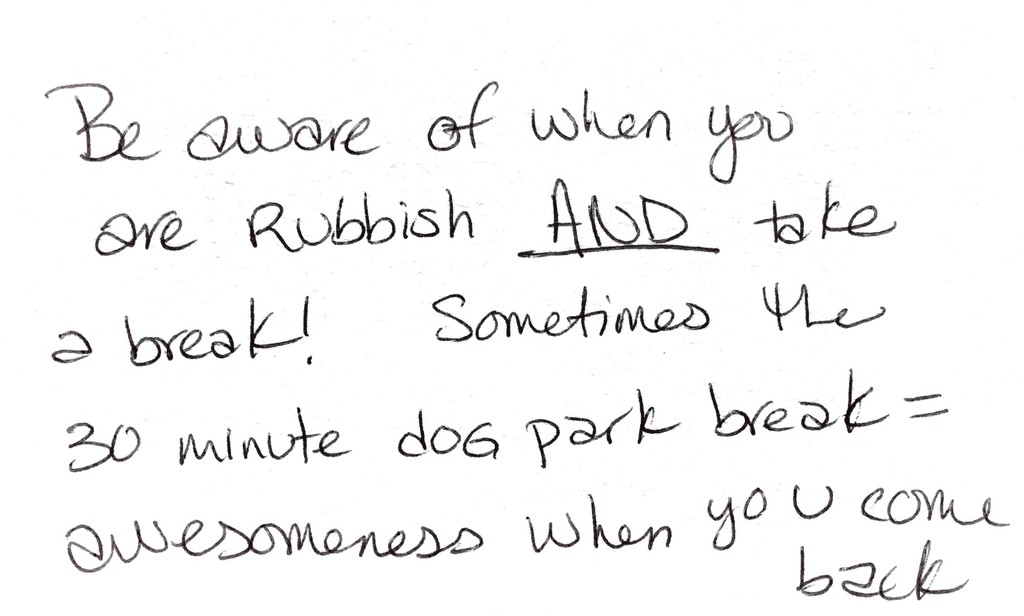 Be aware of when you
are Rubbish AND take
a break! Sometimes the
30 minute dog park break =
awesomeness when you come
back